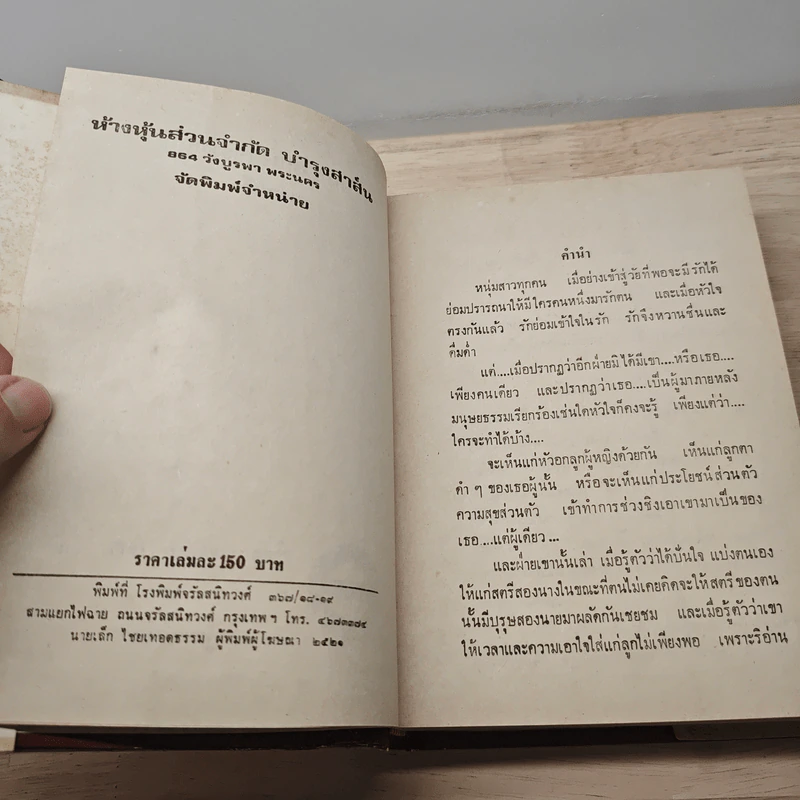 ห้างหุ้นส่วนจำกัด บำรุงสาส์น
864 วังบูรพา พระนคร
จัดพิมพ์จำหน่าย
ราคาเล่มละ 150 บาท
พิมพ์ที่ โรงพิมพ์จรัลสนิทวงศ์ ๓๖๗/๑๔-๑๙
สามแยกไฟฉาย ถนนจรัลสนิทวงศ์ กรุงเทพฯ โทร. ๔๖๗๓๓๗๕
นายเล็ก ไชยเทอดธรรม ผู้พิมพ์ผู้โฆษณา ๒๕๒๑
คำนำ
หนุ่มสาวทุกคน เมื่อย่างเข้าสู่วัยที่พอจะมีรักได้
ย่อมปรารถนาให้มีใครคนหนึ่งมารักตน และเมื่อหัวใจ
ตรงกันแล้ว รักย่อมเข้าใจในรัก รักจึงหวานชื่นและ
ดื่มด่ำ
แต่....เมื่อปรากฏว่าอีกฝ่ายมิได้มีเขา....หรือเธอ....
เพียงคนเดียว และปรากฏว่าเธอ....เป็นผู้มาภายหลัง
มนุษยธรรมเรียกร้องเช่นใดหัวใจก็คงจะรู้ เพียงแต่ว่า....
ใครจะทำได้บ้าง....
จะเห็นแก่หัวอกลูกผู้หญิงด้วยกัน เห็นแก่ลูกตา
ดำ ๆ ของเธอผู้นั้น หรือจะเห็นแก่ประโยชน์ส่วนตัว
ความสุขส่วนตัว เข้าทำการช่วงชิงเอาเขามาเป็นของ
เธอ....แต่ผู้เดียว...
และฝ่ายเขานั้นเล่า เมื่อรู้ตัวว่าได้ปั่นใจ แบ่งตนเอง
ให้แก่สตรีสองนางในขณะที่ตนไม่เคยคิดจะให้สตรีของตน
นั้นมีบุรุษสองนายมาผลัดกันเชยชม และเมื่อรู้ตัวว่าเขา
ให้เวลาและความเอาใจใส่แก่ลูกไม่เพียงพอ เพราะริอ่าน